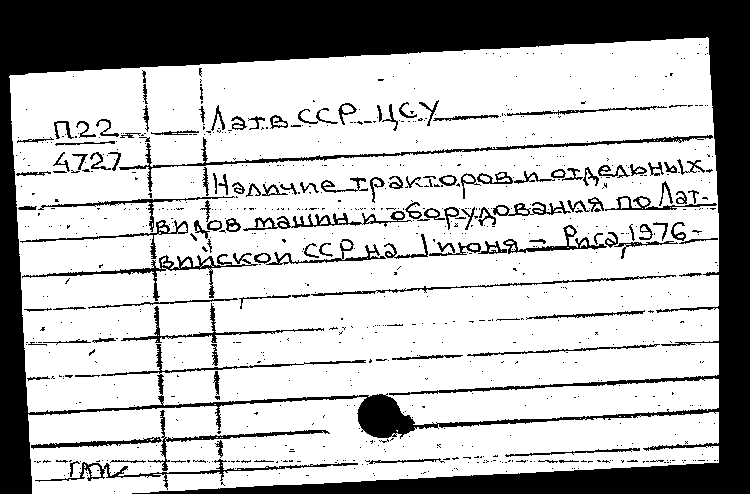 П22
4727
Латв ССР ЦСУ
Наличие тракторов и отдельных
видов машин и оборудования по Лат-
вийской ССР на 1 июня - Рига, 1976-